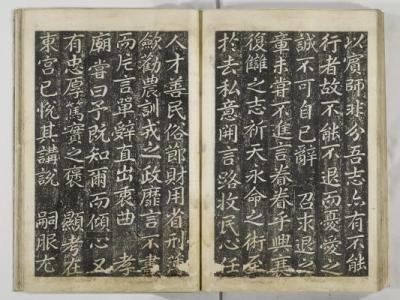 以賓師非分吾志亦有不能
行者故不能不退而憂愛之
誠不可自已辭 召求退之
章未嘗不進言眷眷乎興衰
復雠之志祈天永命之術至
於去私意開言路收民心任
人才善民俗節財用省刑
歛勸農訓戎之政靡言不書
而片言單辭直出衷曲 孝
廟嘗曰予既知爾而傾心又
有忠厚篤實之褒 顯考在
東宮已悅其講說 嗣服尤